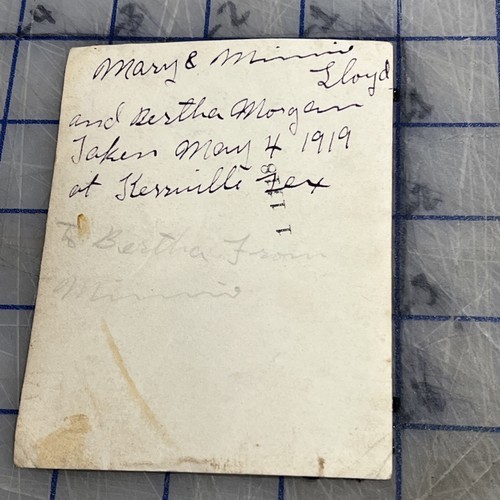 Mary & Minnie
Lloyd
and Bertha Morgan
Taken May 4 1919
at Kerrville Tex
To Bertha From
Minnie